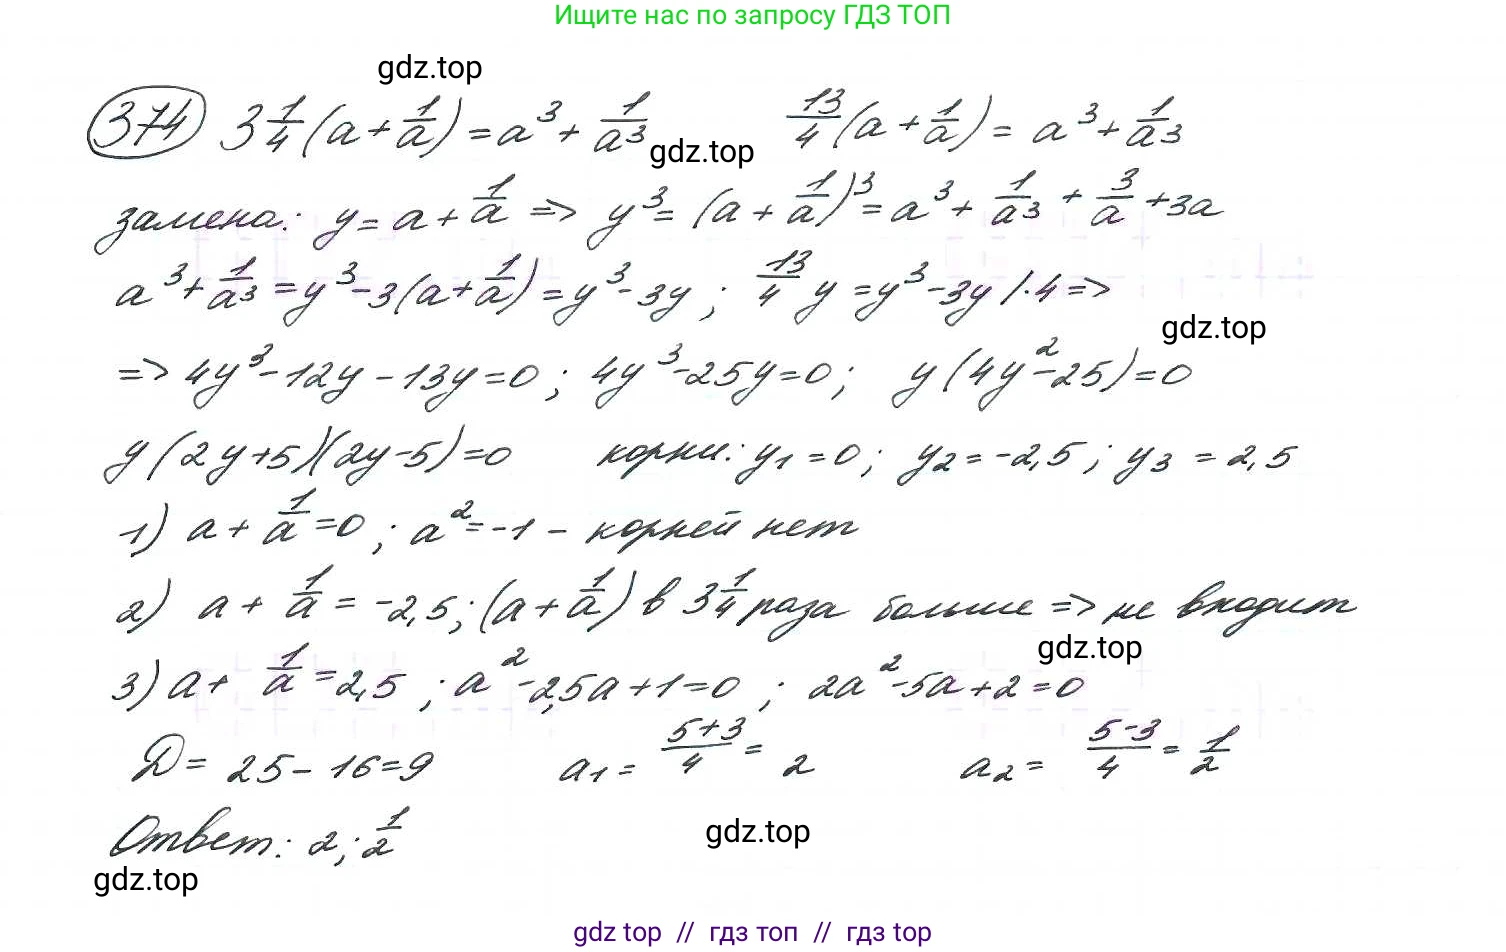 Ищите нас по запросу ГДЗ ТОП
gdz.top
374 3 1/4 (a + 1/a) = a³ + 1/a³ 13/4 (a + 1/a) = a³ + 1/a³
gdz.top
замена: y = a + 1/a => y³ = (a + 1/a)³ = a³ + 1/a³ + 3/a + 3a
a³ + 1/a³ = y³ - 3(a + 1/a) = y³ - 3y ; 13/4 y = y³ - 3y /·4 =>
gdz.top
=> 4y³ - 12y - 13y = 0 ; 4y³ - 25y = 0 ; y(4y² - 25) = 0
y(2y+5)(2y-5) = 0 корни: y₁ = 0 ; y₂ = -2,5 ; y₃ = 2,5
1) a + 1/a = 0 ; a² = -1 - корней нет
2) a + 1/a = -2,5 ; (a + 1/a) в 3 1/4 раза больше => не входит
gdz.top
3) a + 1/a = 2,5 ; a² - 2,5a + 1 = 0 ; 2a² - 5a + 2 = 0
D = 25 - 16 = 9 a₁ = (5+3)/4 = 2 a₂ = (5-3)/4 = 1/2
Ответ: 2; 1/2
gdz.top
gdz.top
gdz top // гдз топ // гдз top